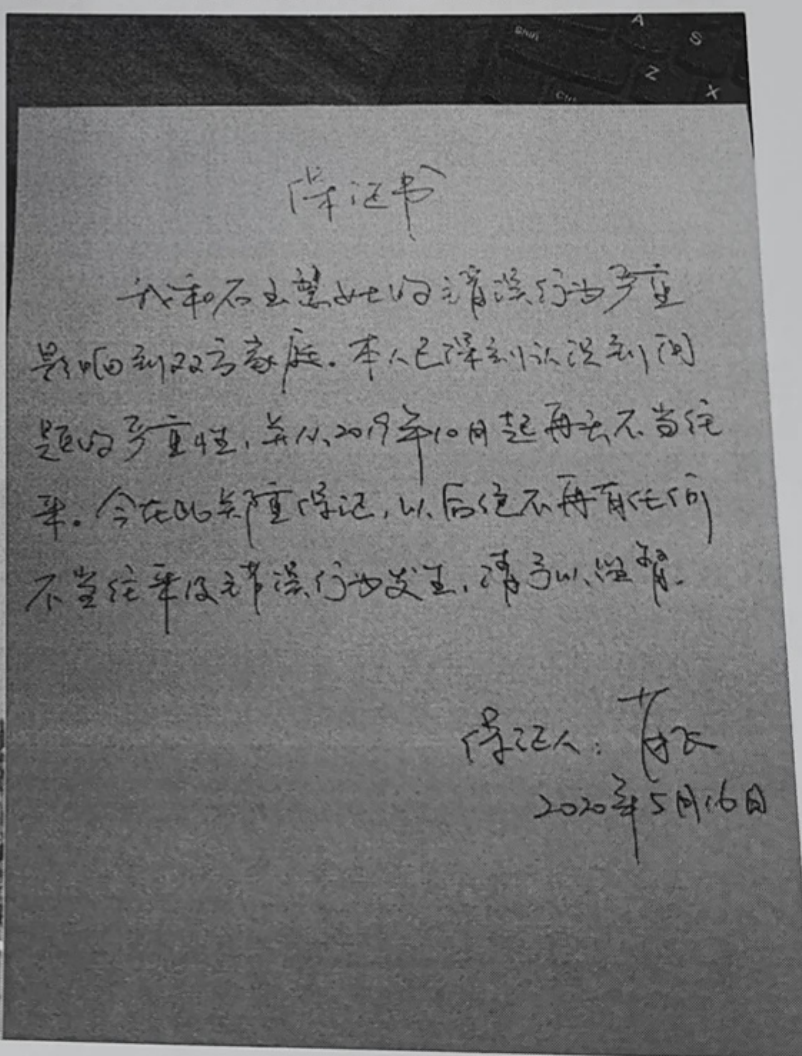 A
S
Shift
Z
X
Ctrl
保证书
我和石玉慧女士的错误行为严重
影响到双方家庭。本人已深刻认识到问
题的严重性,并从2019年10月起再无不当往
来。今在此郑重保证,以后绝不再有任何
不当往来及错误行为发生,请予以监督。
保证人:
2020年5月16日